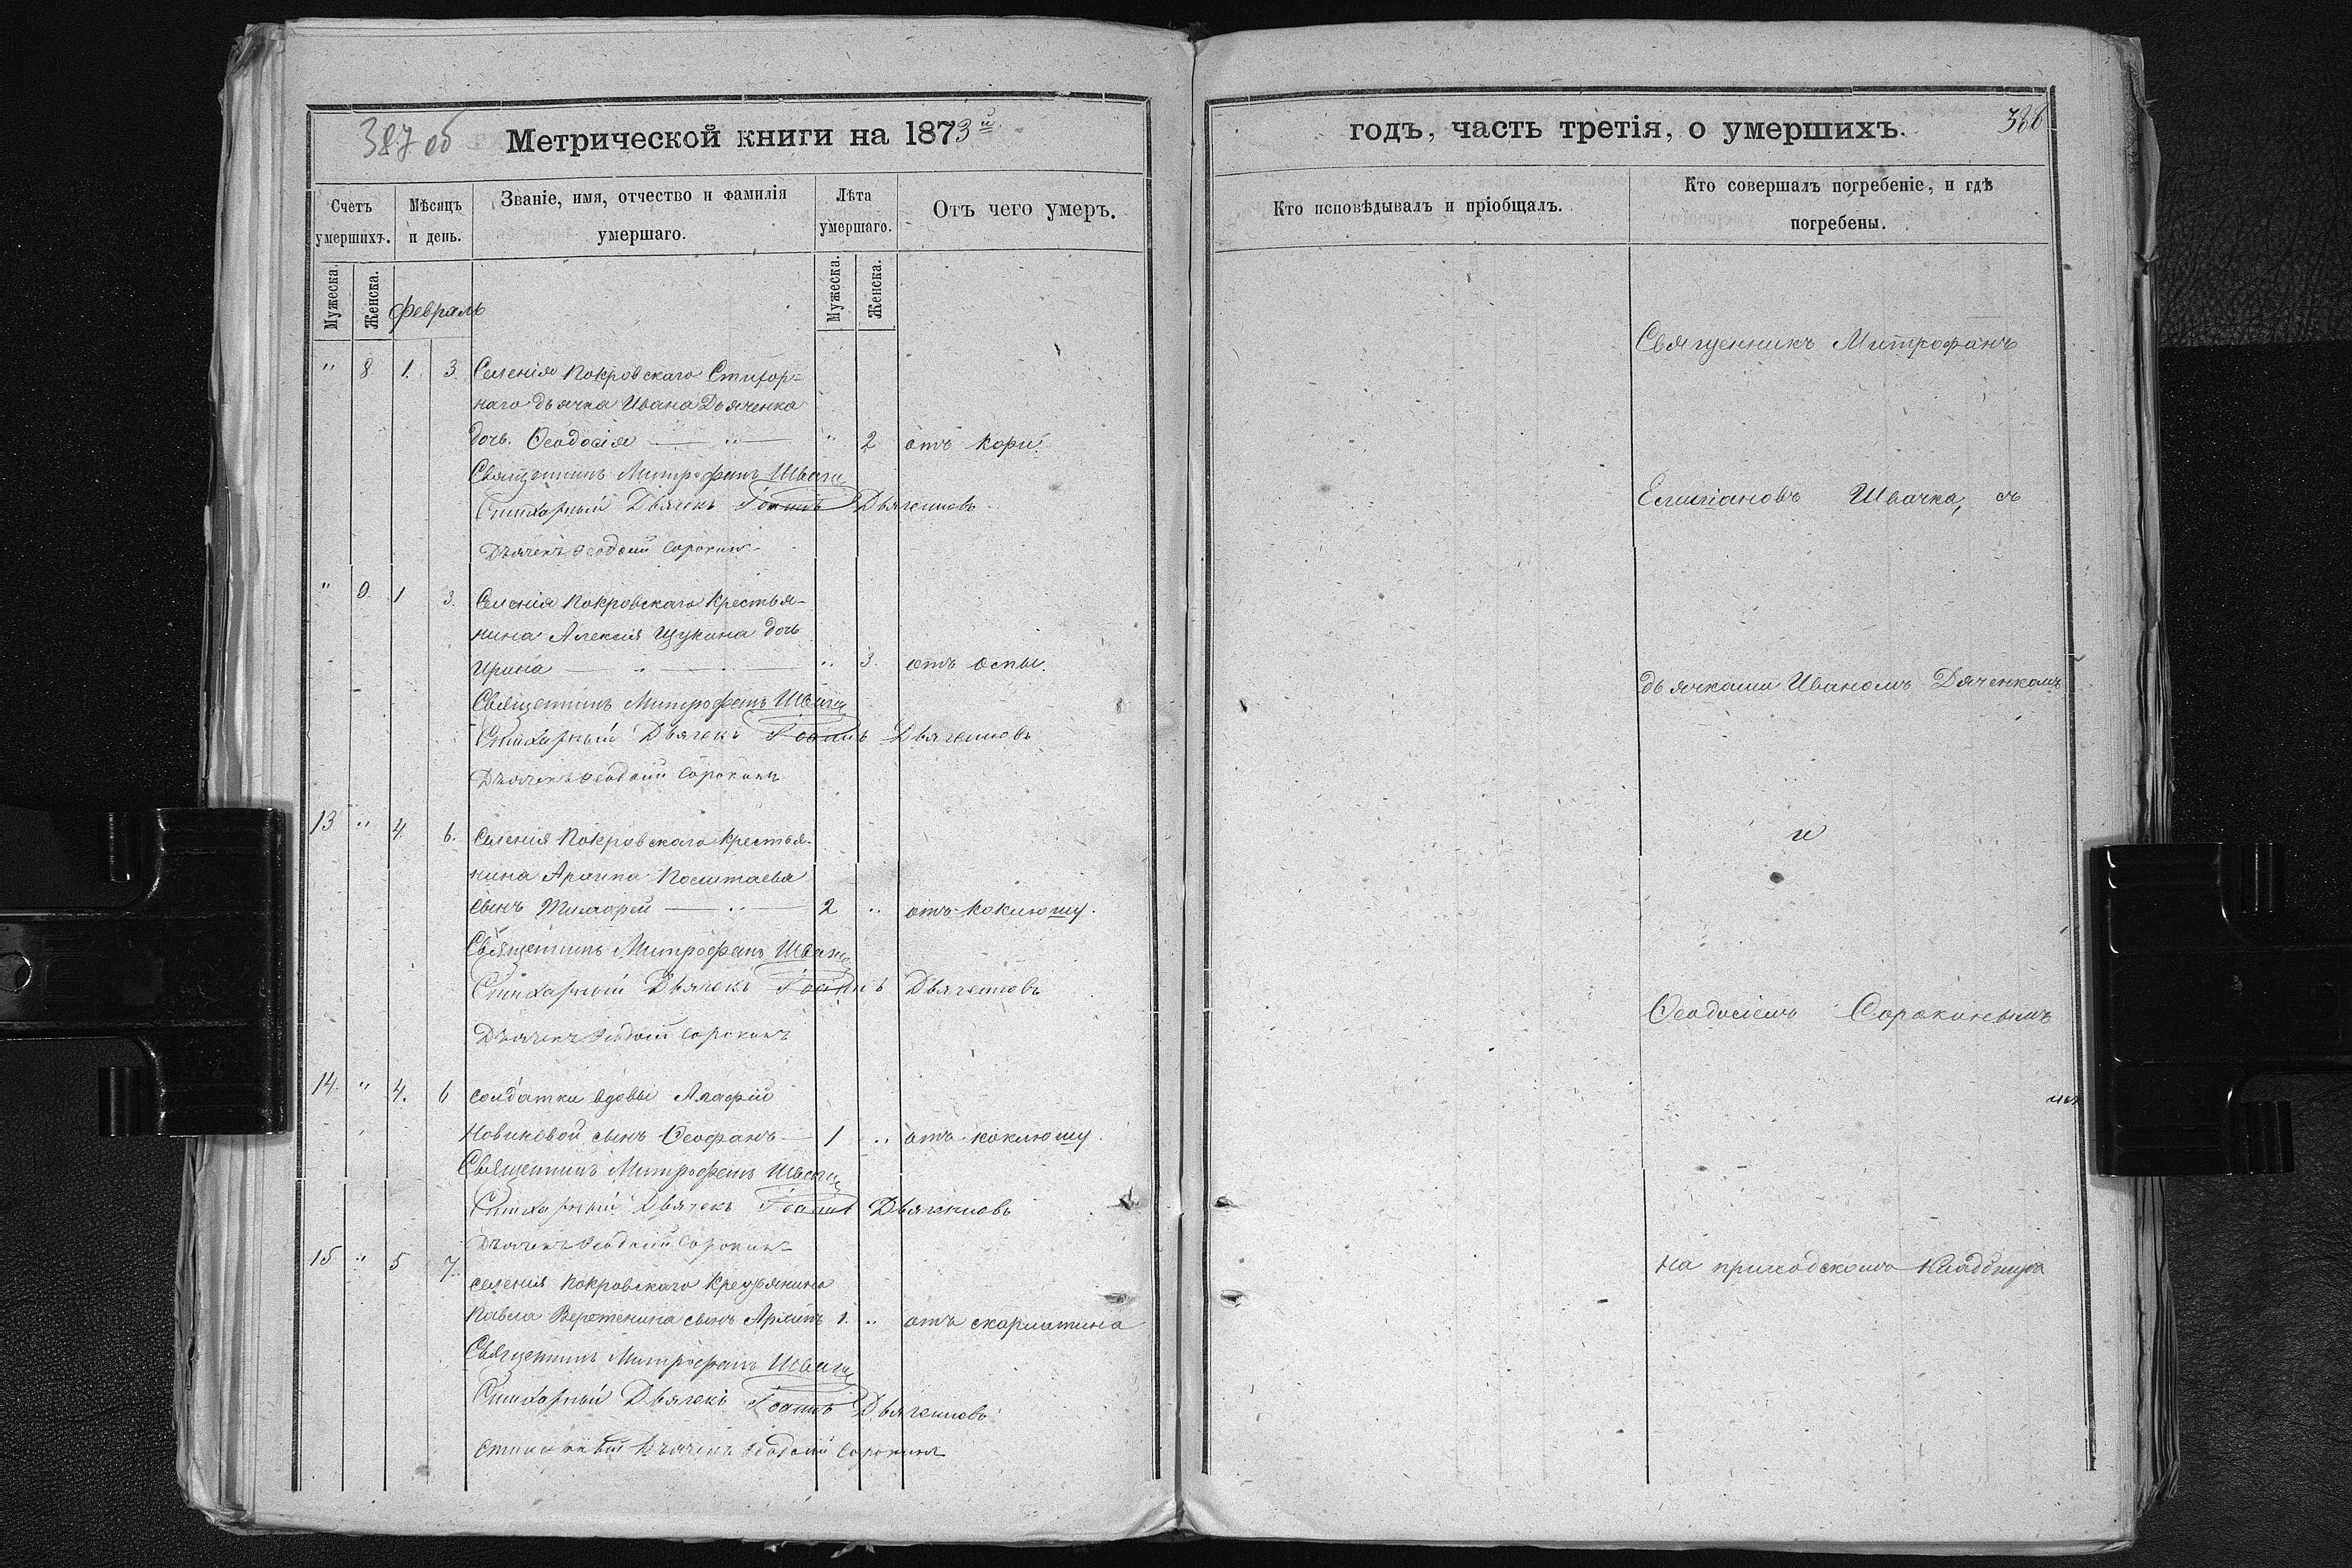 387 об
Метрической книги на 1873й
Счетъ умершихъ.
Мѣсяцъ и день.
Званіе, имя, отчество и фамилія умершаго.
Лѣта умершаго.
Отъ чего умеръ.
Мужеска.
Женска.
Февраль
Мужеска.
Женска.
" 8 1. 3. Селенія Покровскаго Стихор=
наго дьячка Ивана Дьяченка
дочь Ѳеодосія — " — " 2 отъ кори.
Священникъ Митрофанъ Швачка
Стихарный Дьячекъ Іоаннъ Дьяченковъ
Дьячекъ Ѳеодосій Сорокинъ
" 9. 1 3. Селенія Покровскаго Крестья-
нина Алексія Щукина дочь
Ирина — " — " 3. отъ оспы.
Священникъ Митрофанъ Швачка
Стихарный Дьячекъ Іоаннъ Дьяченковъ
Дьячекъ Ѳеодосій Сорокинъ
13 " 4. 6. Селенія Покровскаго Крестья-
нина Архипа
сынъ Тимофей — " — 2 " отъ коклюшу.
Священникъ Митрофанъ Швачка
Стихарный Дьячекъ Іоаннъ Дьяченковъ
Дьячекъ Ѳеодосій Сорокинъ
14. " 4. 6 солдатки вдовы Агафіи
Новиковой сынъ Ѳеофанъ — 1 " отъ коклюшу.
Священникъ Митрофанъ Швачка
Стихарный Дьячекъ Іоаннъ Дьяченковъ
Дьячекъ Ѳеодосій Сорокинъ
15 " 5 7. селения Покровскаго Крестьянина
Павла сынъ Архипъ 1. " отъ скарлатина
Священникъ Митрофанъ Швачка
Стихарный Дьячекъ Іоаннъ Дьяченковъ
Стихарный Дьячекъ Ѳеодосій Сорокинъ
годъ, часть третія, о умершихъ.
388
Кто исповѣдывалъ и пріобщалъ.
Кто совершалъ погребеніе, и гдѣ
погребены.
Священникъ Митрофанъ
Швачка, съ
дьячками Иваномъ Дяченкомъ
и
Ѳеодосіемъ Сорокинымъ
на приходскомъ Кладбищѣ